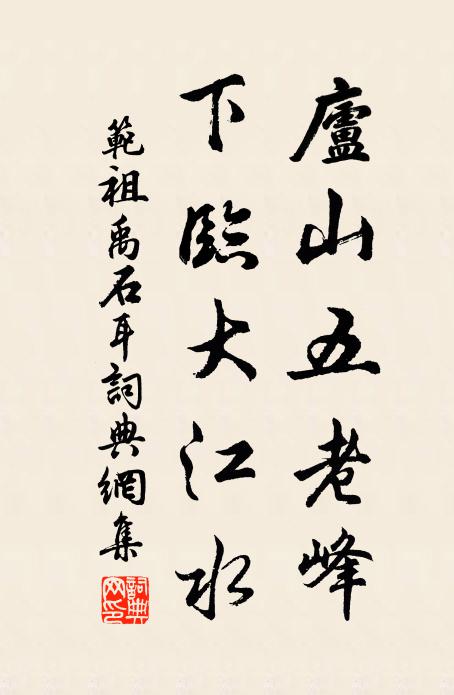 廬山五老峰
下臨大江水
範祖禹石耳詞典網集
詞典網印